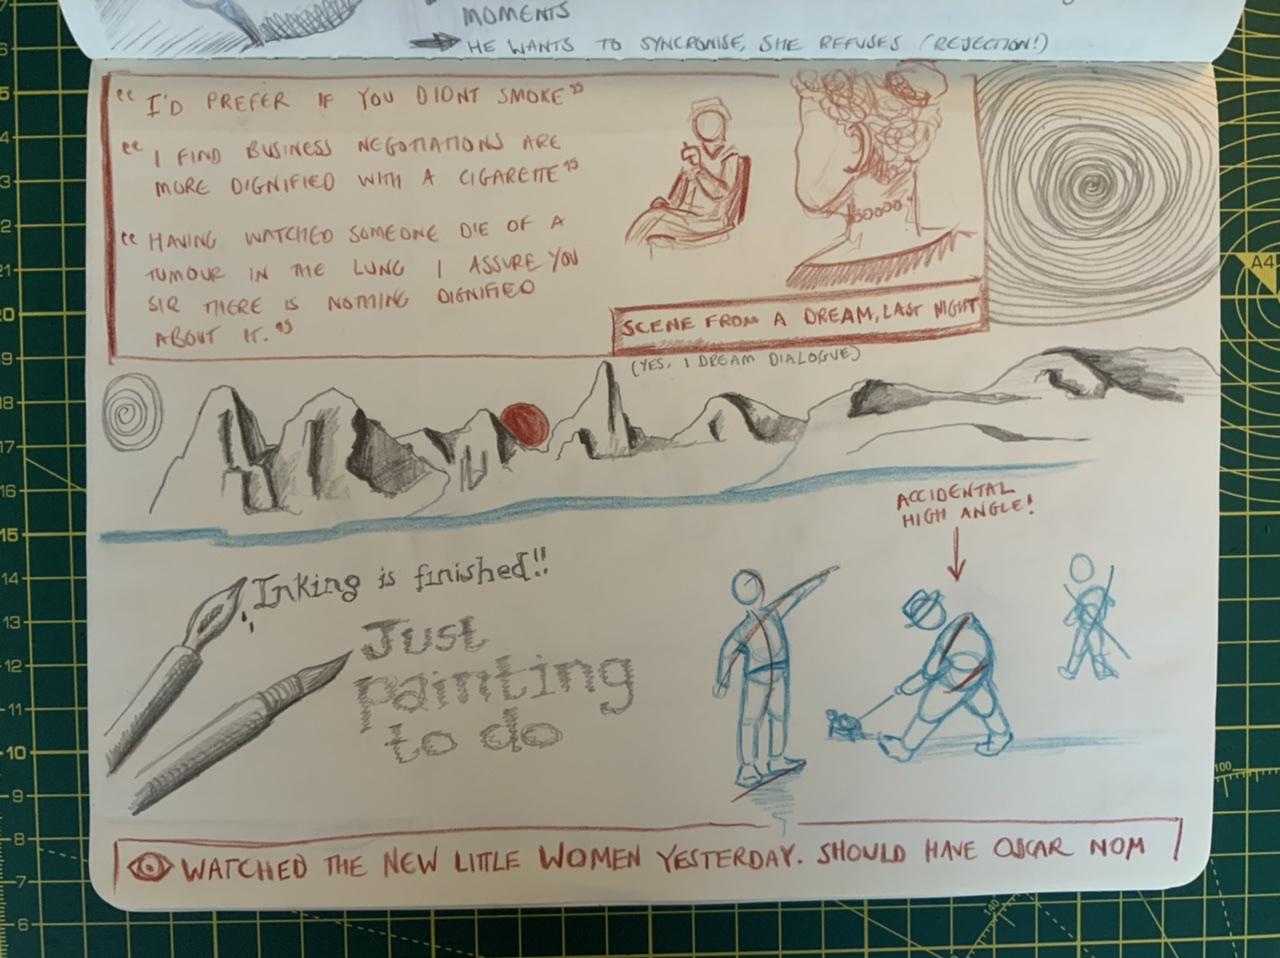 MOMENTS
HE WANTS TO SYNCRONISE, SHE REFUSES (REJECTION!)
"I'D PREFER IF YOU DIDNT SMOKE"
"I FIND BUSINESS NEGOTIATIONS ARE
MORE DIGNIFIED WITH A CIGARETTE"
"HAVING WATCHED SOMEONE DIE OF A
TUMOUR IN THE LUNG I ASSURE YOU
SIR THERE IS NOTHING DIGNIFIED
ABOUT IT."
SCENE FROM A DREAM, LAST NIGHT
(YES, I DREAM DIALOGUE)
ACCIDENTAL
HIGH ANGLE!
Inking is finished!!
Just
painting
to do
WATCHED THE NEW LITTLE WOMEN YESTERDAY. SHOULD HAVE OSCAR NOM
A4
15
14
13
12
11
10
9
8
7
6
18
17
16
100
140